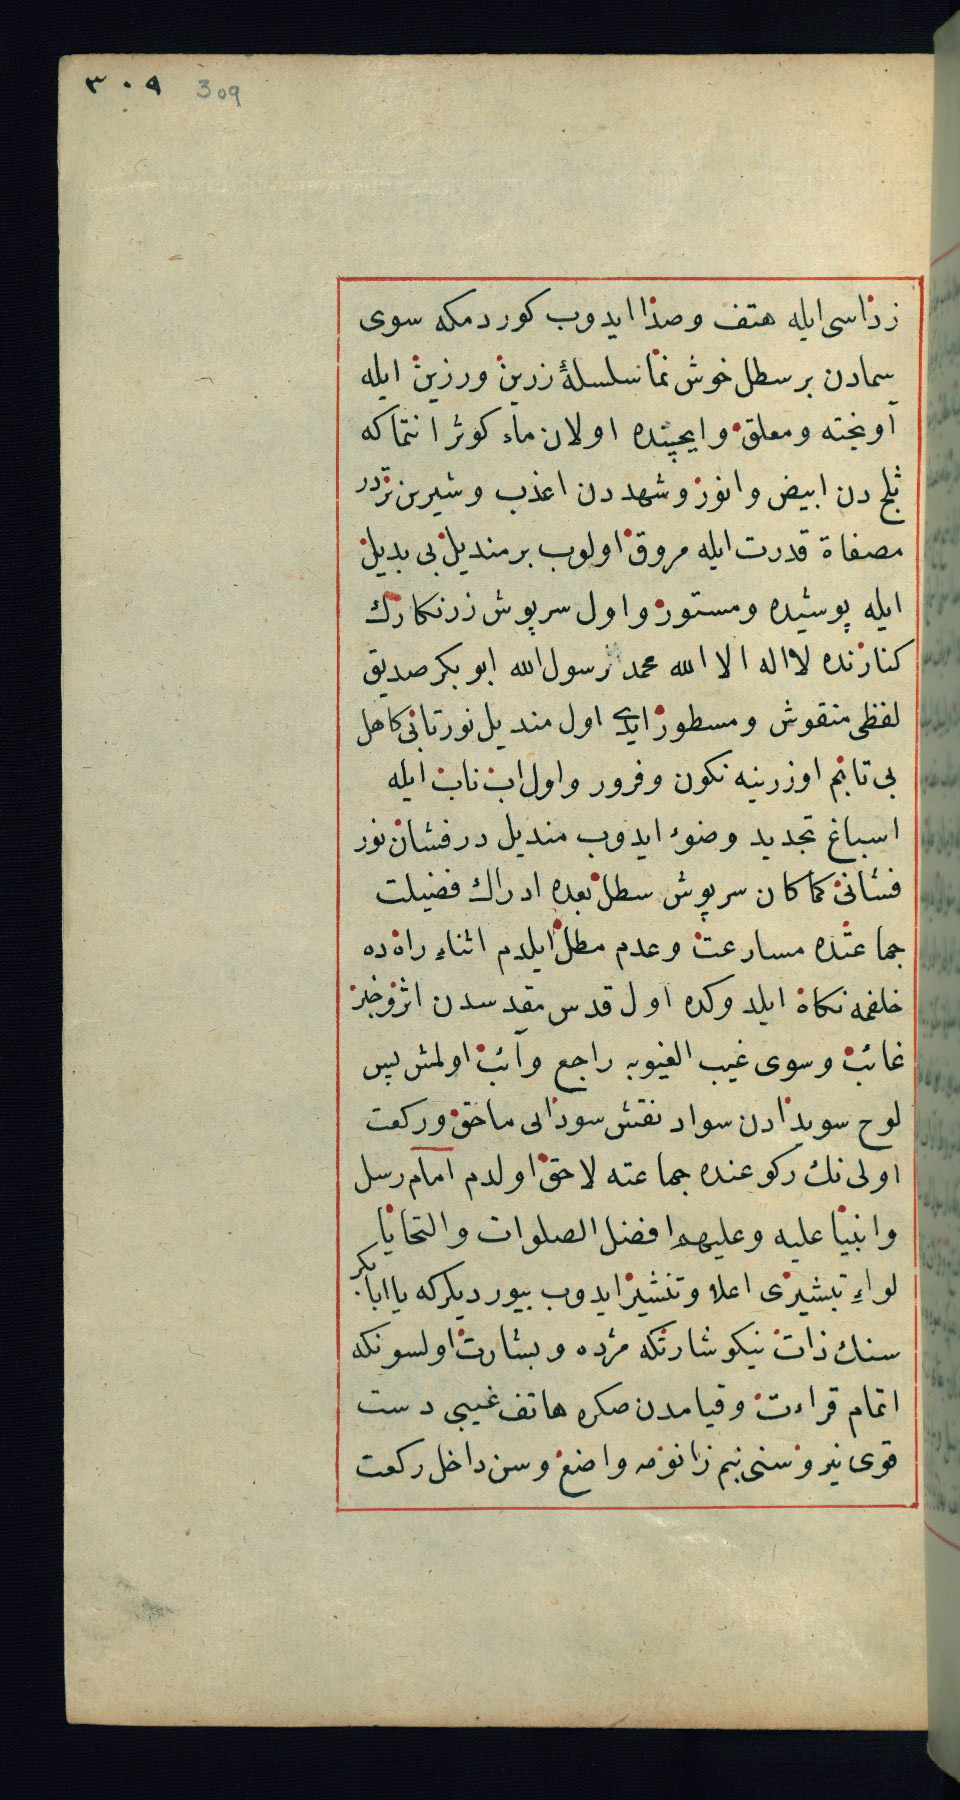 ۳۰۹ 309
زداسی ایله هتف وصدا ایدوب کوردمکه سوی
سمادن برسطل خوش نما سلسلهٔ زرین ورزین ایله
آویخته ومعلق وایچنده اولان ماء کوثر انتماکه
ثلج دن ابیض وانور وشهددن اعذب وشیرین تردر
مصفاة قدرت ایله مروق اولوب برمندیل بی بدیل
ایله پوشیده ومستور واول سرپوش زرنکارک
کنارنده لا اله الا الله محمد رسول الله ابو بکر صدیق
لفظی منقوش ومسطور ایدی اول مندیل نورتابی کاهل
بی تابم اوزرینه نکون وفرور واول اب ناب ایله
اسباغ تجدید وضوء ایدوب مندیل درفشان نور
فشانی کماکان سرپوش سطل بعده ادراك فضیلت
جماعتده مسارعت وعدم مطل ایلدم اثناء راه ده
خلفمه نکاه ایلدوکده اول قدس مقدسدن اثر وخبر
غائب وسوی غیب الغیوبه راجع وآئب اولمش پس
لوح سویدادن سواد نقش سودایی ماحق ورکعت
اولی نك رکوعنده جماعته لاحق اولدم امام رسل
وانبیا علیه وعلیهم افضل الصلوات والتحایا
لواء تبشیری اعلا وتنشیر ایدوب بیوردیلرکه یا ابا بکر
سنك ذات نیکو شارتکه مژده وبشارت اولسونکه
اتمام قراءت وقیامدن صکره هاتف غیبی دست
قوی نیروسنی بنم زانومه واضع وسن داخل رکعت